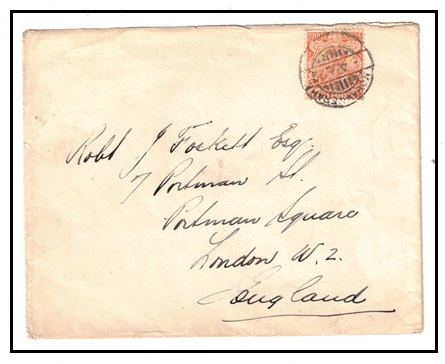 Robt J Foskett Esq.
7 Portman St.
Portman Square
London W. 2.
England